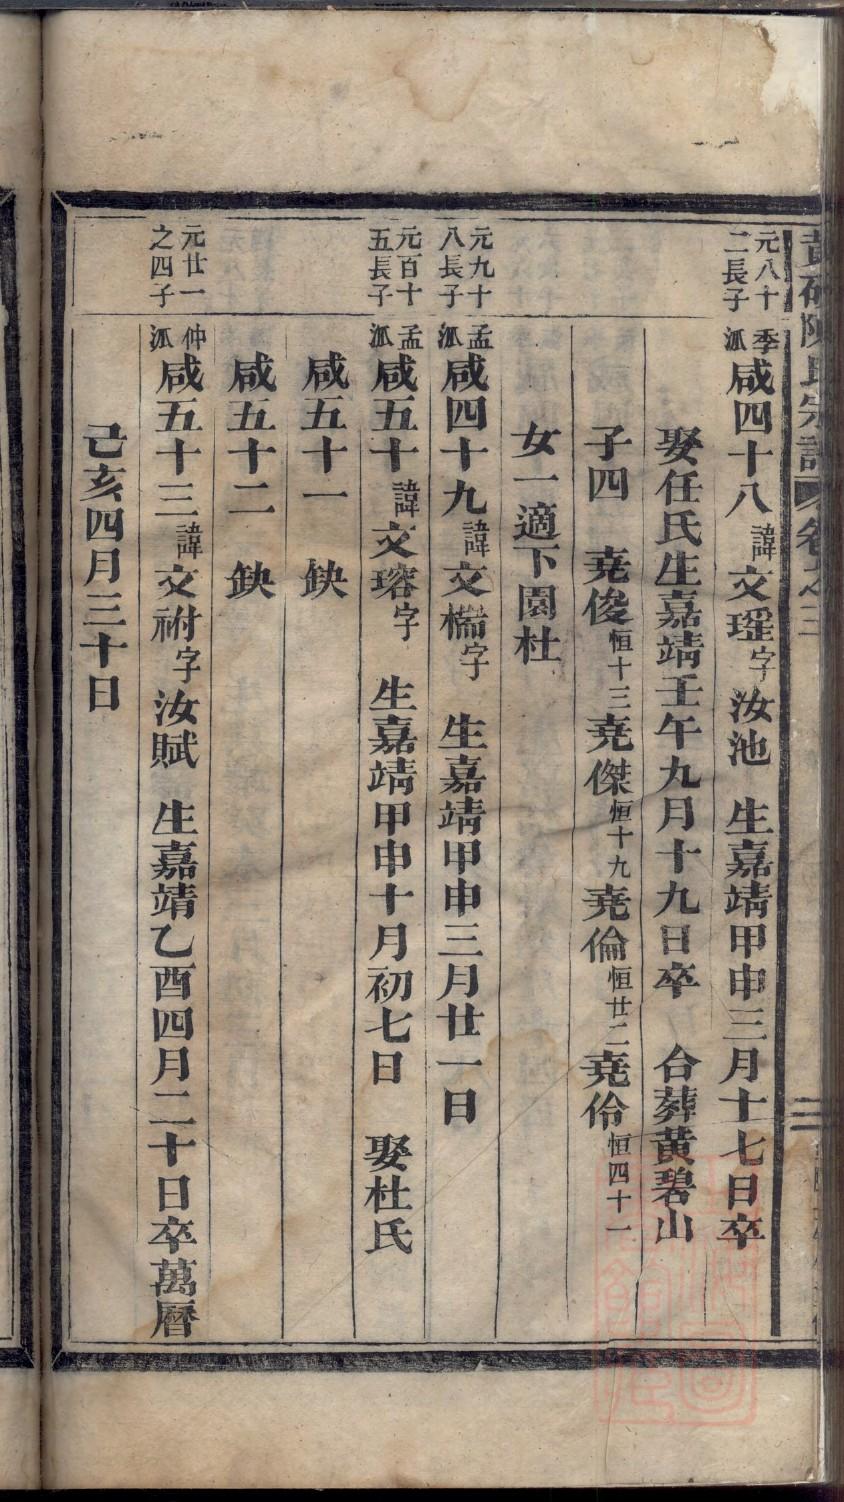 陳氏宗譜 卷之三
元八十二長子
季派 咸四十八 諱文瑶字汝池 生嘉靖甲申三月十七日卒
娶任氏生嘉靖壬午九月十九日卒 合葬黃碧山
子四 堯俊恒十三 堯傑恒十九 堯倫恒廿二 堯伶恒四十一
女一適下園杜
元九十八長子
孟派 咸四十九 諱文 字 生嘉靖甲申三月廿一日
元百十五長子
孟派 咸五十 諱文瑢字 生嘉靖甲申十月初七日 娶杜氏
咸五十一 缺
咸五十二 缺
元廿一之四子
仲派 咸五十三 諱文祔字汝賦 生嘉靖乙酉四月二十日卒萬曆
己亥四月三十日